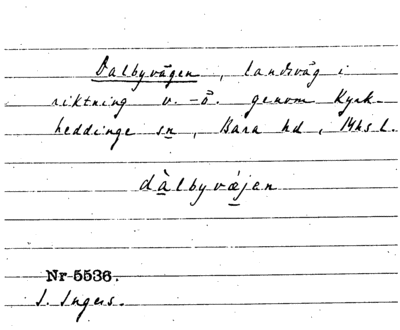 Dalbyvägen, landsväg i
riktning v.-ö. genom Kyrk-
heddinge sn, Bara hd, Mhs l.
dàlbyvæ̀jen
Nr 5536.
I. Ingers.